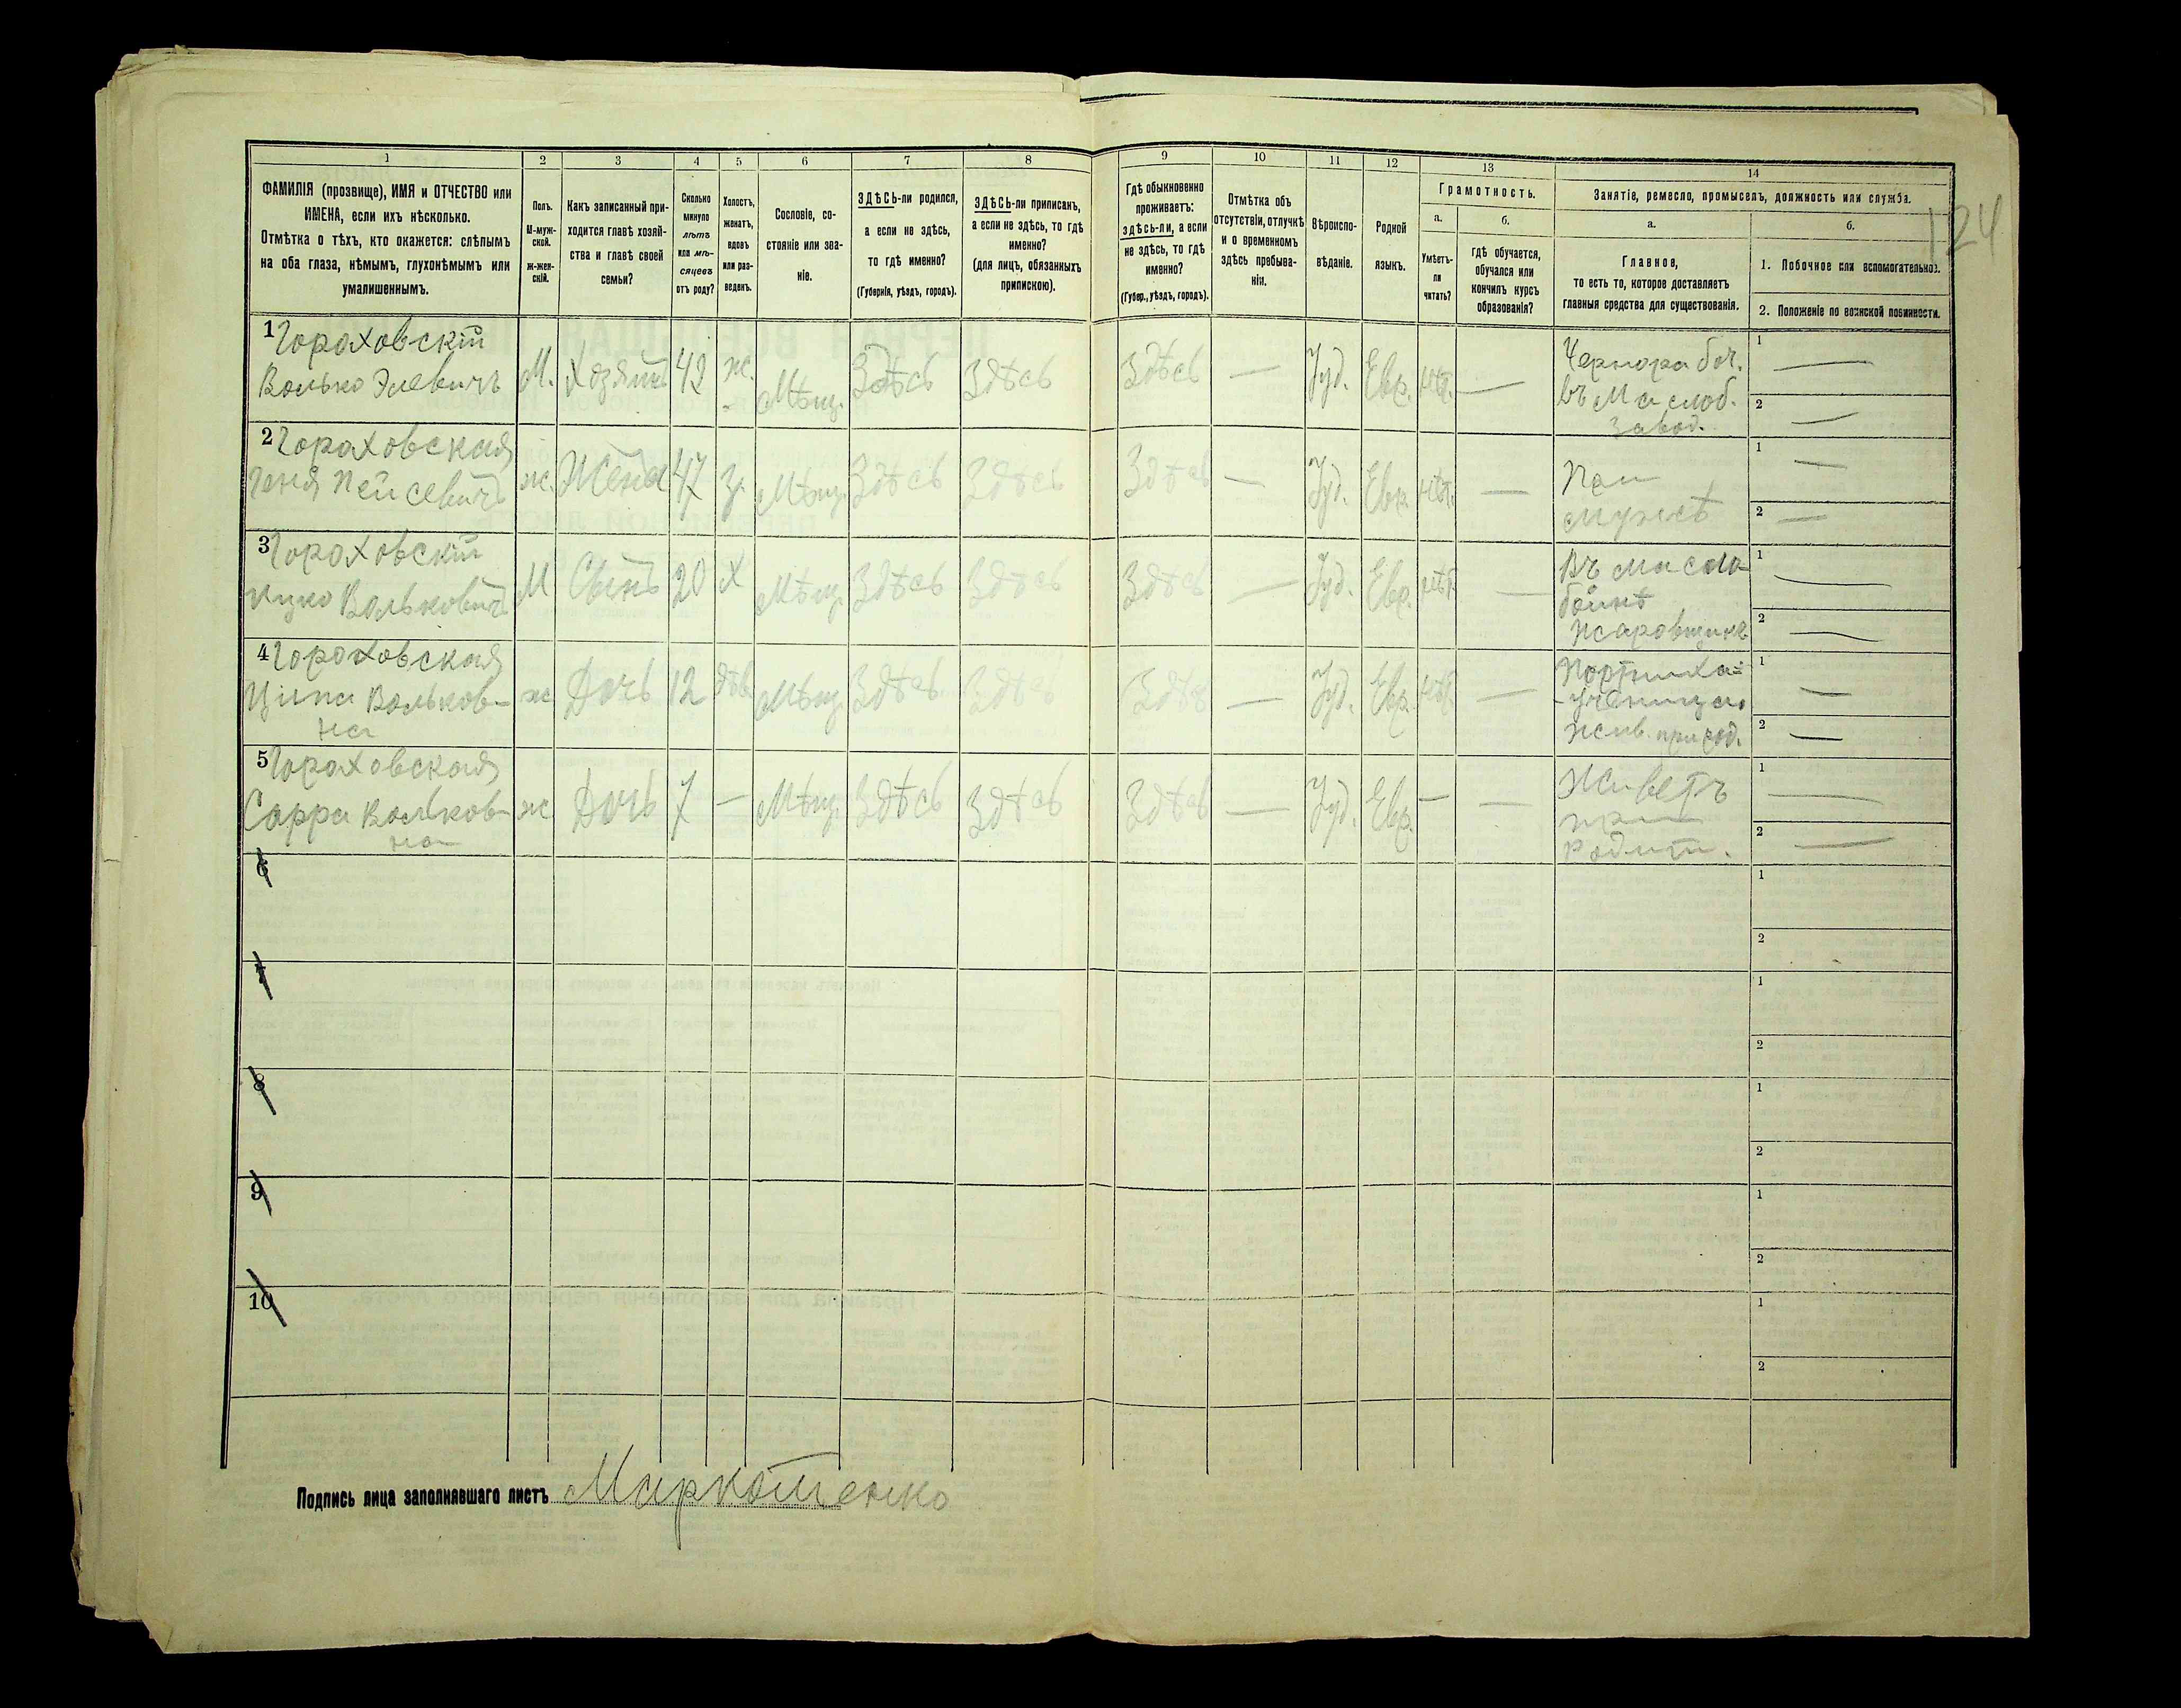 124
1 2 3 4 5 6 7 8 9 10 11 12 13 14
ФАМИЛІЯ (прозвище), ИМЯ и ОТЧЕСТВО или
ИМЕНА, если ихъ нѣсколько.
Отмѣтка о тѣхъ, кто окажется: слѣпымъ
на оба глаза, нѣмымъ, глухонѣмымъ или
умалишеннымъ.
Полъ.
М-муж-
ской.
Ж-жен-
скій.
Какъ записанный при-
ходится главѣ хозяй-
ства и главѣ своей
семьи?
Сколько
минуло
лѣтъ
или мѣ-
сяцевъ
отъ роду?
Холостъ,
женатъ,
вдовъ
или раз-
веденъ.
Сословіе, со-
стояніе или зва-
ніе.
ЗДѢСЬ-ли родился,
а если не здѣсь,
то гдѣ именно?
(Губернія, уѣздъ, городъ).
ЗДѢСЬ-ли приписанъ,
а если не здѣсь, то гдѣ
именно?
(для лицъ, обязанныхъ
припискою).
Гдѣ обыкновенно
проживаетъ:
здѣсь-ли, а если
не здѣсь, то гдѣ
именно?
(Губер., уѣздъ, городъ).
Отмѣтка объ
отсутствіи, отлучкѣ
и о временномъ
здѣсь пребыва-
ніи.
Вѣроиспо-
вѣданіе.
Родной
языкъ.
Грамотность.
а.
Умѣетъ-
ли
читать?
б.
гдѣ обучается,
обучался или
кончилъ курсъ
образованія?
Занятіе, ремесло, промыселъ, должность или служба.
а.
Главное,
то есть то, которое доставляетъ
главныя средства для существованія.
б.
1. Побочное или вспомогательное.
2. Положеніе по воинской повинности.
1 Гораховскій
Волько Элевичъ М. Хозяинъ 42 ж. Мѣщ. Здѣсь Здѣсь Здѣсь — Іуд. Евр. нѣт. —
Чернорабоч.
въ Маслоб.
завод.
1 —
2 —
2 Гораховская
Геня Пейсевичъ ж. Жена 47 з. Мѣщ. Здѣсь Здѣсь Здѣсь — Іуд. Евр. нѣт. —
При
мужѣ
1 —
2 —
3 Гораховскій
Ицко Вольковичъ М Сынъ 20 Х Мѣщ. Здѣсь Здѣсь Здѣсь — Іуд. Евр. нѣт. —
Въ масло-
бойнѣ
жаровщикъ
1 —
2 —
4 Гораховская
Ципа Вольков-
на ж Дочь 12 дѣв. Мѣщ. Здѣсь Здѣсь Здѣсь — Іуд. Евр. нѣт. —
Портниха-
-ученица
жив. при род.
1 —
2 —
5 Гораховская
Сарра Вольков-
на ж Дочь 7 — Мѣщ. Здѣсь Здѣсь Здѣсь — Іуд. Евр. — —
Живетъ
при
родит.
1 —
2 —
6
1
2
7
1
2
8
1
2
9
1
2
10
1
2
Подпись лица заполнявшаго листъ Маркотенко